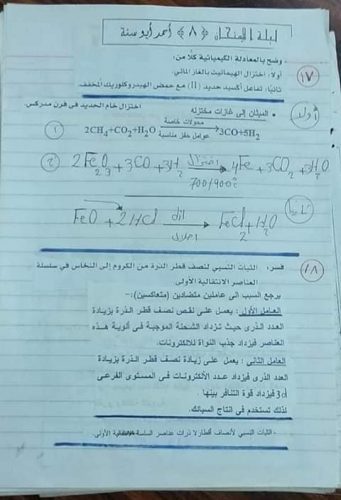 ليلة الامتحان ﴿٨﴾ أحمد أبو سنة
١٧
وضح بالمعادلة الكيميائية كلا من:
أولا: اختزال الهيماتيت بالغاز المائي
ثانيا: تفاعل أكسيد حديد (II) مع حمض الهيدروكلوريك المخفف.
أولا
• الميثان إلى غازات مختزله
اختزال خام الحديد في فرن مدركس
محولات خاصة
١ 2CH₄+CO₂+H₂O → 3CO+5H₂
عوامل حفز مناسبة
٢ 2Fe₂O₃+3CO+3H₂ → 4Fe+3CO₂+3H₂O
اختزال
700/900°c
ثانيا
FeO + 2HCl → FeCl₂+H₂O
dil
١٨
فسر: الثبات النسبي لنصف قطر الذرة من الكروم إلى النحاس في سلسلة
العناصر الانتقالية الأولى
يرجع السبب الى عاملين متضادين (متعاكسين):-
العامل الأول: يعمل على نقص نصف قطر الذرة بزيادة
العدد الذرى حيث تزداد الشحنة الموجبة في أنوية هذه
العناصر فيزداد جذب النواة للالكترونات.
العامل الثاني: يعمل على زيادة نصف قطر الذرة بزيادة
العدد الذرى فيزداد عدد الألكترونات في المستوى الفرعى
3d فيزداد قوة التنافر بينها.
لذلك تستخدم في انتاج السبائك.
- الثبات النسبي لأنصاف أقطار لا ذرات عناصر السلسة الانتقالية الأولى.